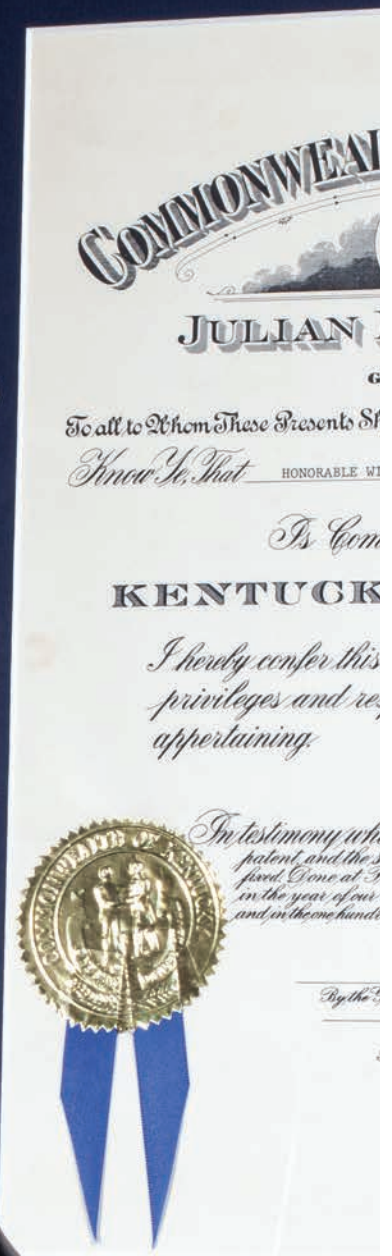 COMMONWEAL
JULIAN
G
To all to Whom These Presents Sh
Know Ye, That HONORABLE WI
Is Com
KENTUCK
I hereby confer this
privileges and res
appertaining.
In testimony whe
patent, and the s
fixed. Done at F
in the year of our
and in the one hundre
COMMONWEALTH OF KENTUCKY
By the G